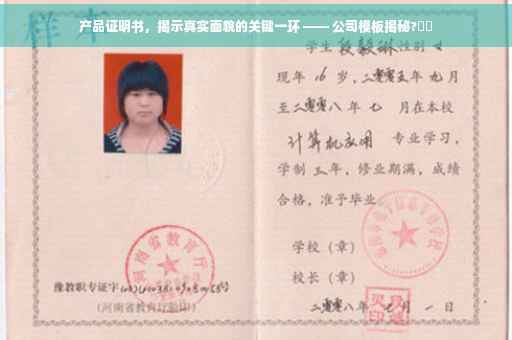 产品证明书，揭示真实面貌的关键一环 —— 公司模板揭秘?
样本
学生 段毅琳 性别 女
现年 16 岁，二零零五年 九月
至二零零八年 七 月在本校
计算机应用 专业学习，
学制 三年，修业期满，成绩
合格，准予毕业
学校（章）
校长（章）
二零零八年 月 一 日
河南省教育厅
豫教职专证字
（河南省教育厅验印）